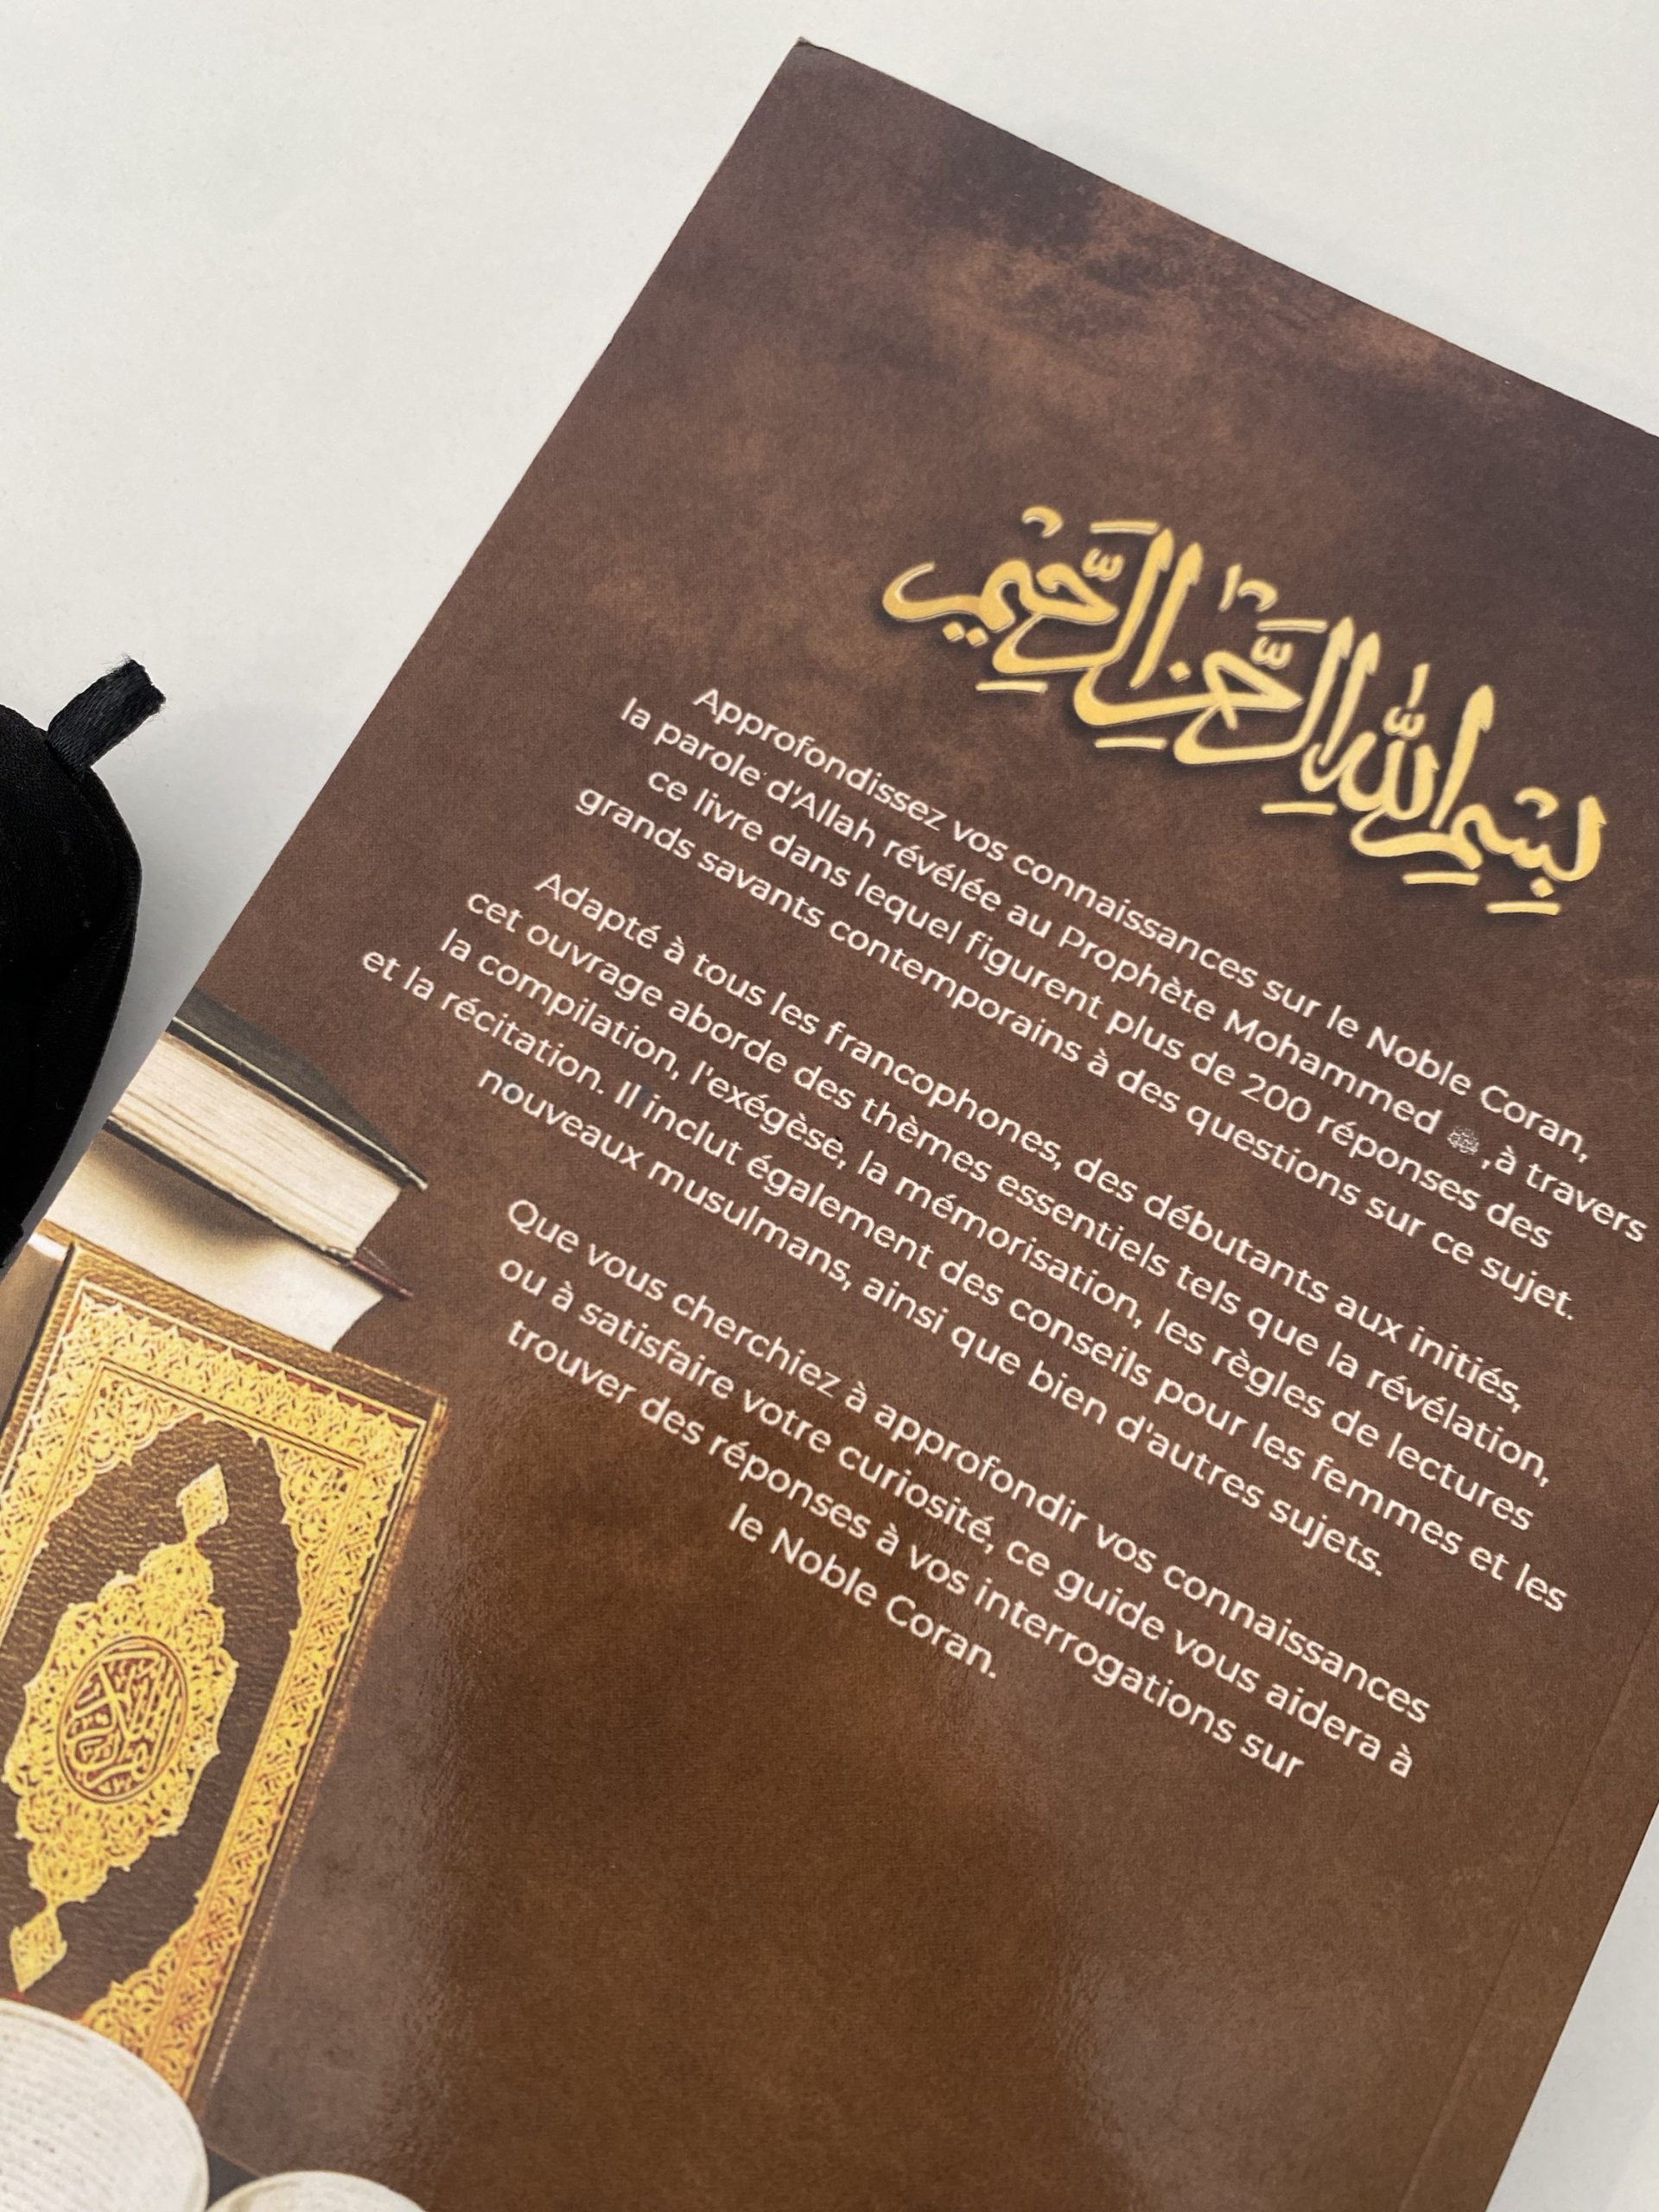 بسم الله الرحمن الرحيم
Approfondissez vos connaissances sur le Noble Coran,
la parole d'Allah révélée au Prophète Mohammed ﷺ ,à travers
ce livre dans lequel figurent plus de 200 réponses des
grands savants contemporains à des questions sur ce sujet.
Adapté à tous les francophones, des débutants aux initiés,
cet ouvrage aborde des thèmes essentiels tels que la révélation,
la compilation, l'exégèse, la mémorisation, les règles de lectures
et la récitation. Il inclut également des conseils pour les femmes et les
nouveaux musulmans, ainsi que bien d'autres sujets.
Que vous cherchiez à approfondir vos connaissances
ou à satisfaire votre curiosité, ce guide vous aidera à
trouver des réponses à vos interrogations sur
le Noble Coran.